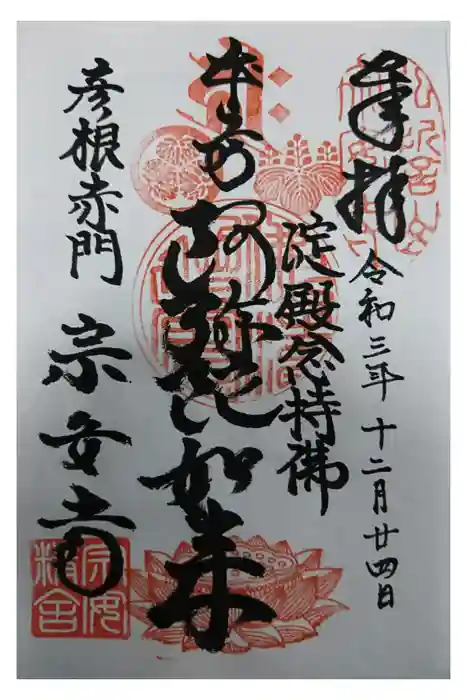 奉拝
令和三年十二月廿四日
淀殿念持佛
阿弥陀如来
彦根赤門
宗安寺
宗安
精舎